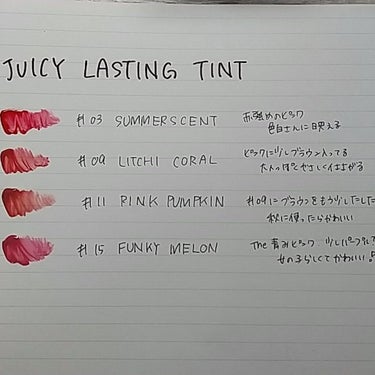 JUICY LASTING TINT
#03 SUMMERSCENT
赤強めのピンク
色白さんに映える
#09 LITCHI CORAL
ピンクに少しブラウン入ってる
大人っぽくやさしく仕上がる
#11 PINK PUMPKIN
#09にブラウンをもう少し足した
秋に使ったらかわいい
#15 FUNKY MELON
The 青みピンク 少しパープル
女の子らしくてかわいい♪